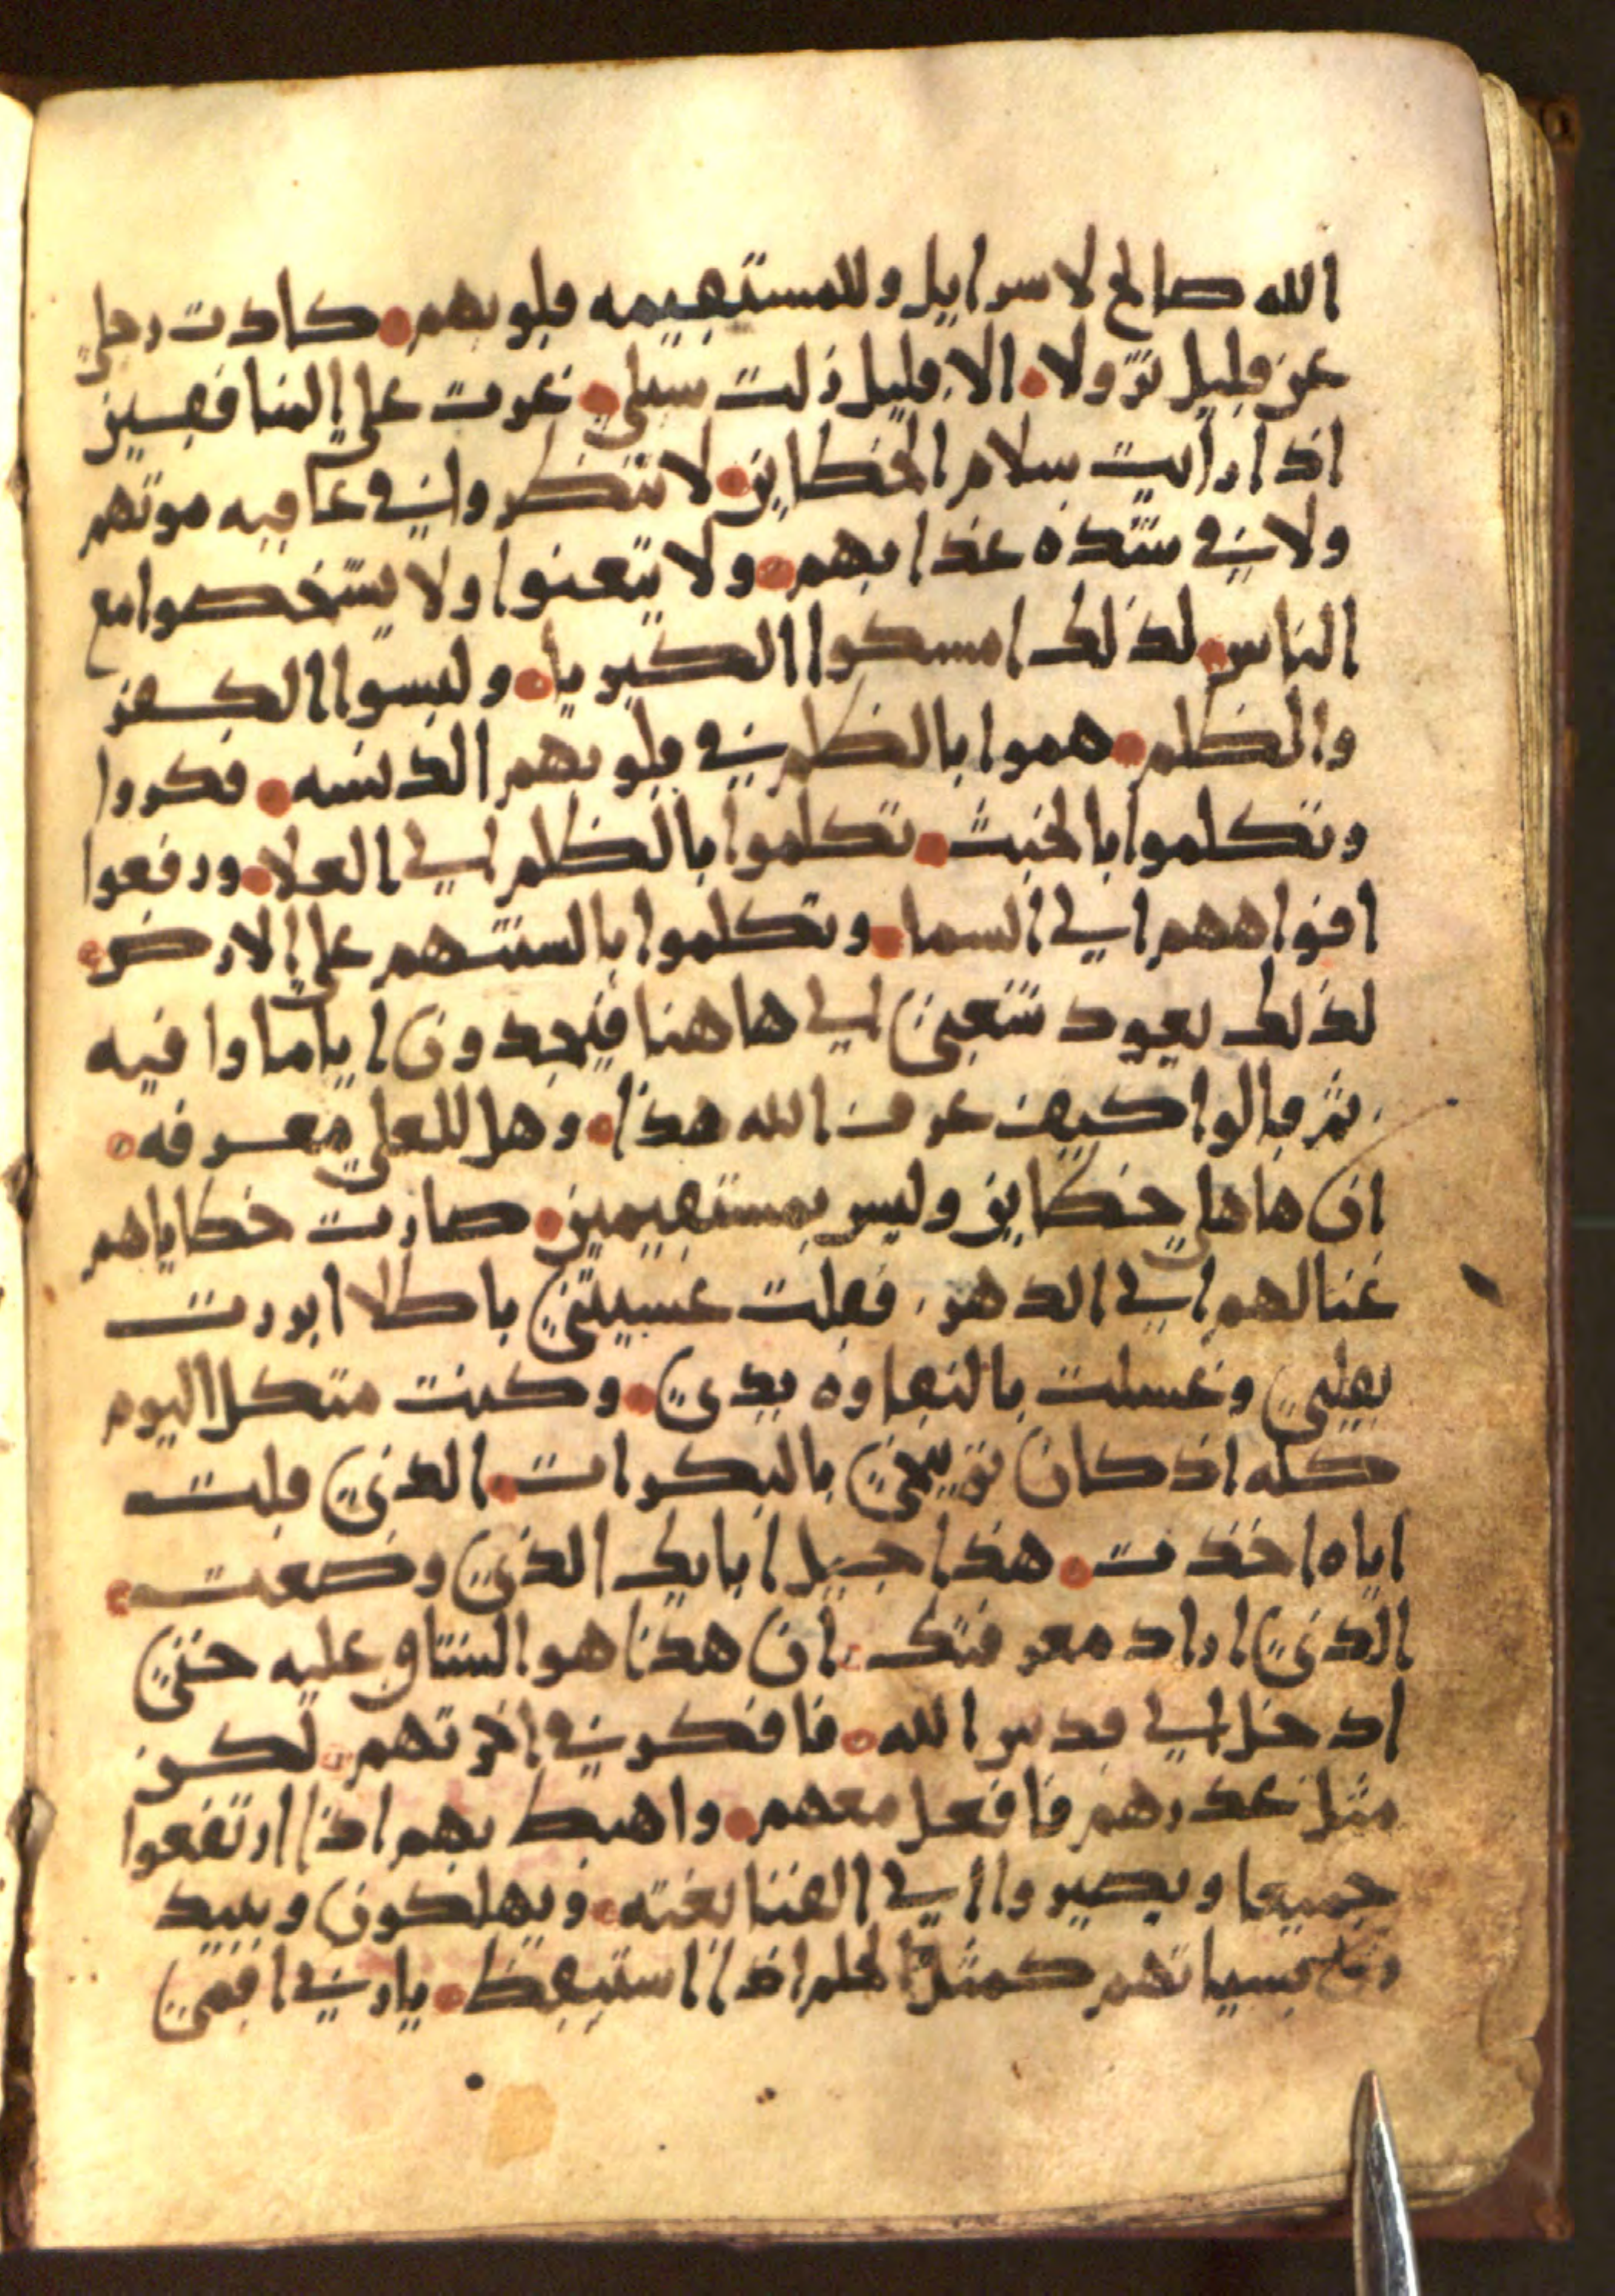 الله صالح لاسرايل وللمستقيمه قلوبهم كادت رجلي
عن قليل تزولا الا قليل زلت سبلي غرت علي المنافقين
اذا رايت سلام الخطاين لا تنظروا في عاقبه موتهم
ولا في شده عذابهم ولا يتعنوا ولا يشخصوا مع
الناس لذلك امسكوا الكبريا ولبسوا الكفر
والظلم هموا بالظلم في قلوبهم الدنسه فكروا
وتكلموا بالخبث تكلموا بالظلم الي العلا ورفعوا
افواههم الي السما وتكلموا بالسنتهم علي الارض
لذلك يعود شعبي الي هاهنا فيجدون اياما وافيه
ثم قالوا كيف عرف الله هذا وهل للعلي معرفه
ان هاهلي خطاين وليس بمستقيمين صارت خطاياهم
غنا لهم الي الدهر فقلت عسيتني باطلا ابررت
بقلبي وغسلت بالنقاوه يدي وكنت متكل اليوم
كله اذ كان توبيخي بالبكرات الذي قلت
اياه اخذت هذا جيل ابايك الذي وضعت
الذي اراد معرفتك ان هذا هو الشتاق عليه حتي
ادخل الي قدس الله فافكر في اخرتهم لكن
مثل غدرهم فافعل معهم واهبط بهم اذا ارتفعوا
جميعا ويصيروا الي الفنا بغته ويهلكون ويبيد
بسياتهم كمثل الحلم اذا استيقظ يارب في اقمي